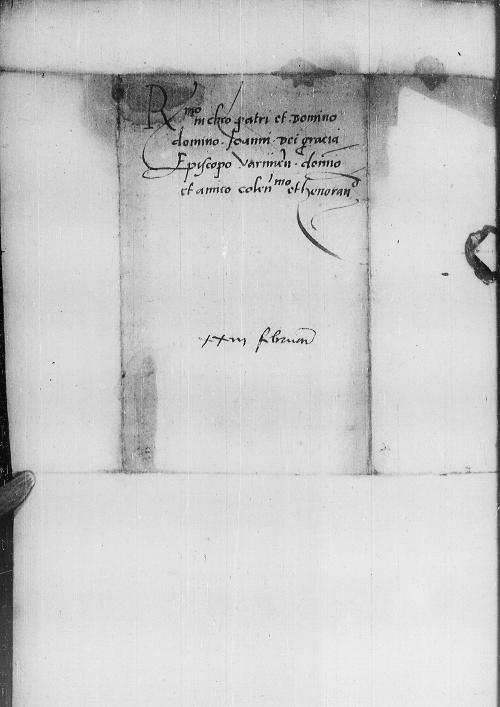 Rmo in chro patri et domino
domino · Ioanni · dei gracia
Episcopo Varmien · domino
et amico colenmo et honoran
xxiii februarii